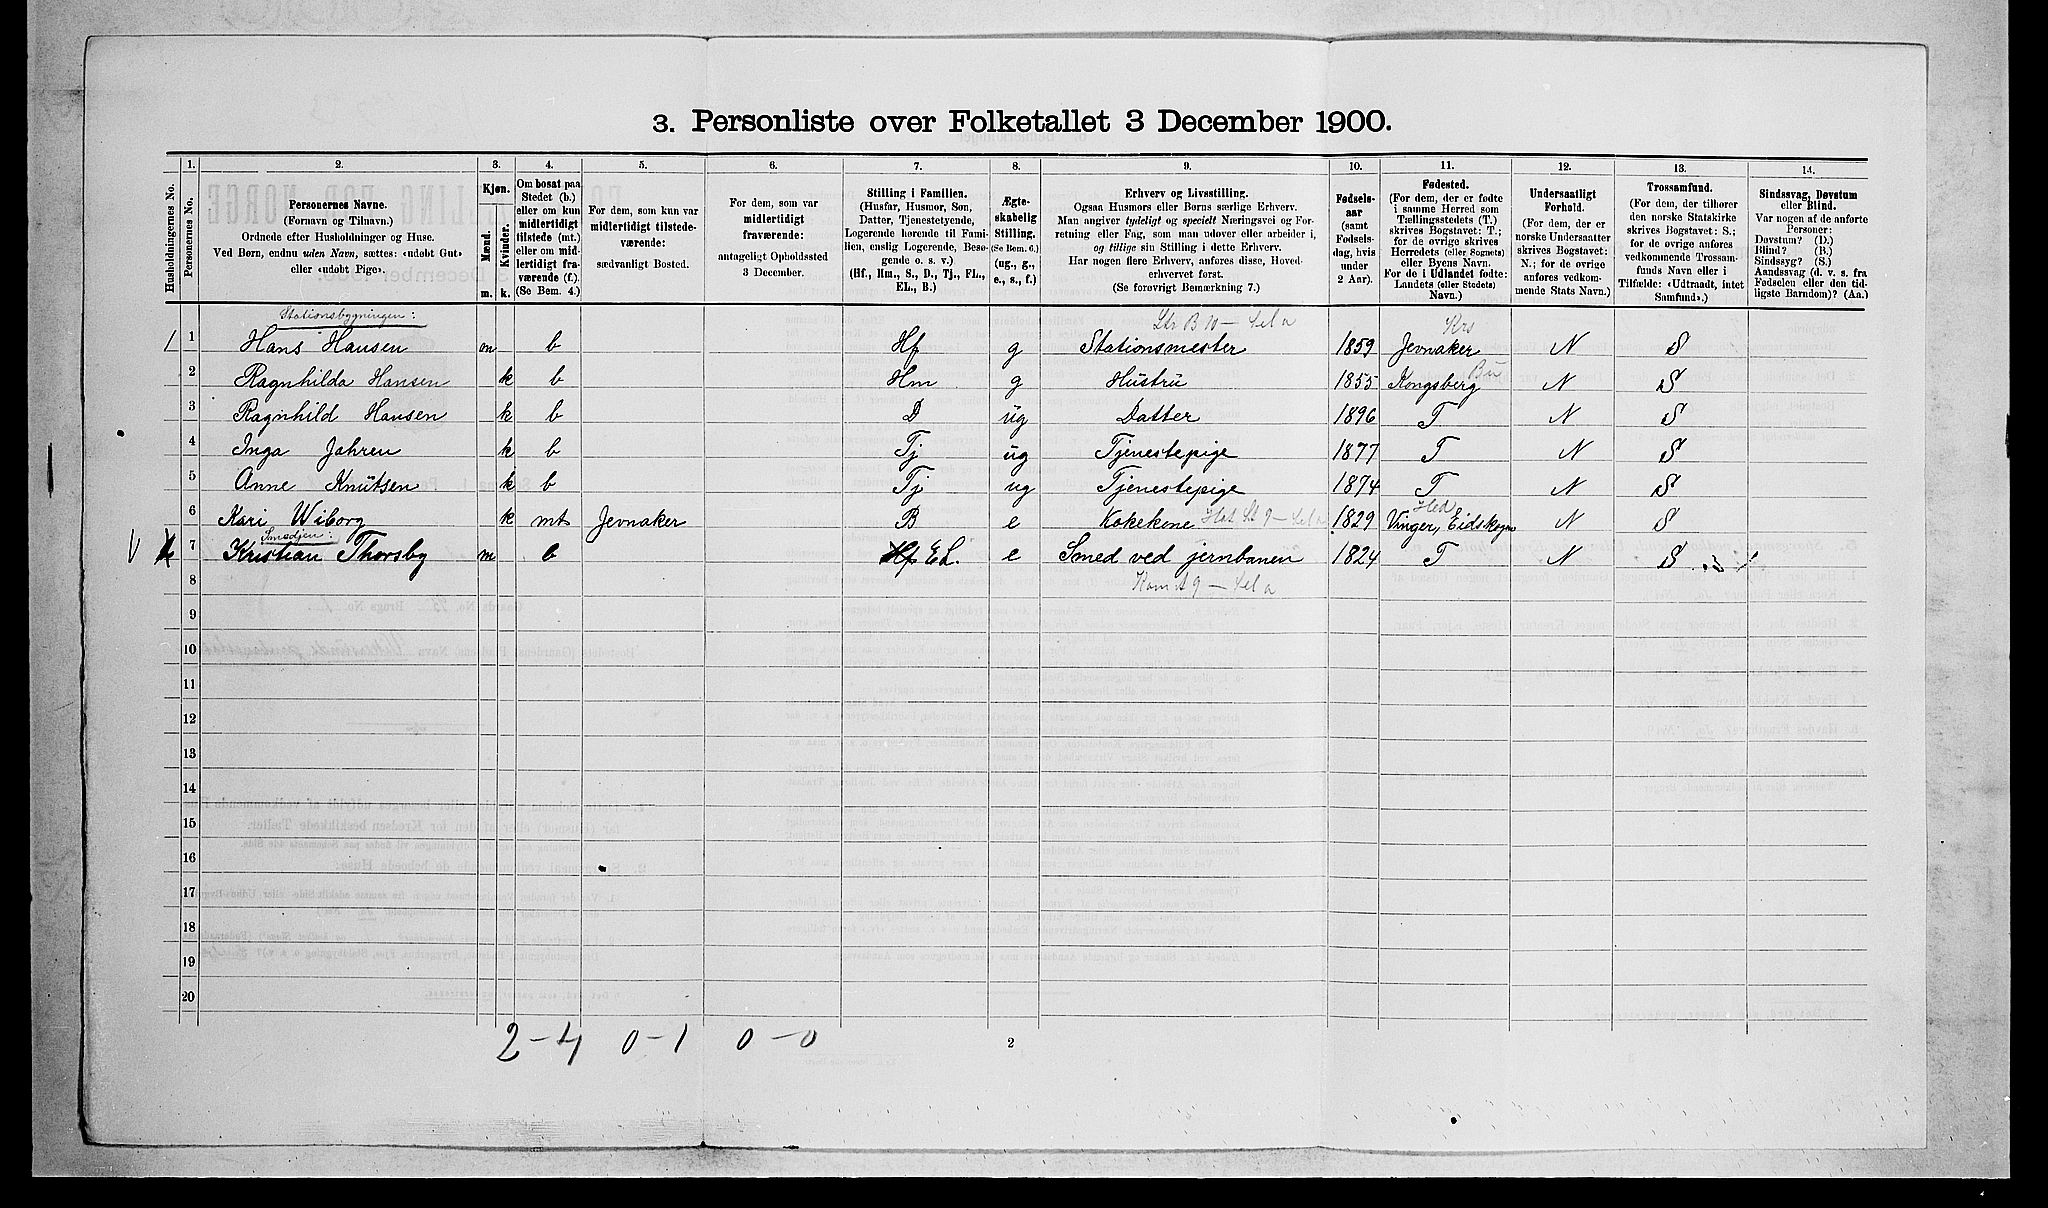 3. Personliste over Folketallet 3 December 1900.
1. 2. 3. 4. 5. 6. 7. 8. 9. 10. 11. 12. 13. 14.
Husholdningernes No.
Personernes No.
Personernes Navne.
(Fornavn og Tilnavn.)
Ordnede efter Husholdninger og Huse.
Ved Børn, endnu uden Navn, sættes: «udøbt Gut»
eller «udøbt Pige».
Kjøn.
Mænd. Kvinder.
m. k.
Om bosat paa
Stedet (b.)
eller om kun
midlertidigt
tilstede (mt.)
eller om mid-
lertidigt fra-
værende (f.).
(Se Bem. 4.)
For dem, som kun var
midlertidigt tilstede-
værende:
sædvanligt Bosted.
For dem, som var
midlertidigt
fraværende:
antageligt Opholdssted
3 December.
Stilling i Familien.
(Husfar, Husmor, Søn,
Datter, Tjenestetyende,
Logerende hørende til Fami-
lien, enslig Logerende, Besø-
gende o. s. v.)
(Hf., Hm., S., D., Tj., FL.,
EL., B.)
Ægte-
skabelig
Stilling.
(Se Bem. 6.)
(ug., g.,
e., s., f.)
Erhverv og Livsstilling.
Ogsaa Husmors eller Børns særlige Erhverv.
Man angiver tydeligt og specielt Næringsvei og For-
retning eller Fag, som man udøver eller arbeider i,
og tillige sin Stilling i dette Erhverv.
Har nogen flere Erhverv, anføres disse, Hoved-
erhvervet først.
(Se forøvrigt Bemærkning 7.)
Fødsels-
aar
(samt
Fødsels-
dag, hvis
under
2 Aar).
Fødested.
(For dem, der er fødte
i samme Herred som
Tællingsstedets (T.)
skrives Bogstavet: T.;
for de øvrige skrives
Herredets (eller Sognets)
eller Byens Navn.
For de i Udlandet fødte:
Landets (eller Stedets)
Navn.)
Undersaatligt
Forhold.
(For dem, der er
norske Undersaatter
skrives Bogstavet:
N.; for de øvrige
anføres vedkom-
mende Stats Navn.)
Trossamfund.
(For dem, der tilhører
den norske Statskirke
skrives Bogstavet: S.;
for de øvrige anføres
vedkommende Trossam-
funds Navn eller i
Tilfælde: «Udtraadt, intet
Samfund».)
Sindssvag, Døvstum
eller Blind.
Var nogen af de anførte
Personer:
Døvstum? (D.)
Blind? (B.)
Sindssyg? (S.)
Aandssvag (d. v. s. fra
Fødselen eller den tid-
ligste Barndom)? (Aa.)
Stationsbygningen:
1 1 Hans Hansen m b Hf g Stationsmester 1859 Jevnaker N S
Krs
2 Ragnhilda Hansen k b Hm g Hüstrü 1855 Kongsberg Bu N S
3 Ragnhild Hansen k b D üg Datter 1896 T N S
4 Inga Jahren k b Tj üg Tjenestepige 1877 T N S
5 Anne Knütsen k b Tj ug Tjenestepige 1874 T N S
6 Kari Wiborg k mt Jevnaker B e Kokekone 1829 Vinger, Eidskogn N S
Hed
Smedjen:
7 Kristian Thorsby m b Hf EL. e Smed ved jernbanen 1824 T N S
8
9
10
11
12
13
14
15
16
17
18
19
20
2-4 0-1 0-0
2